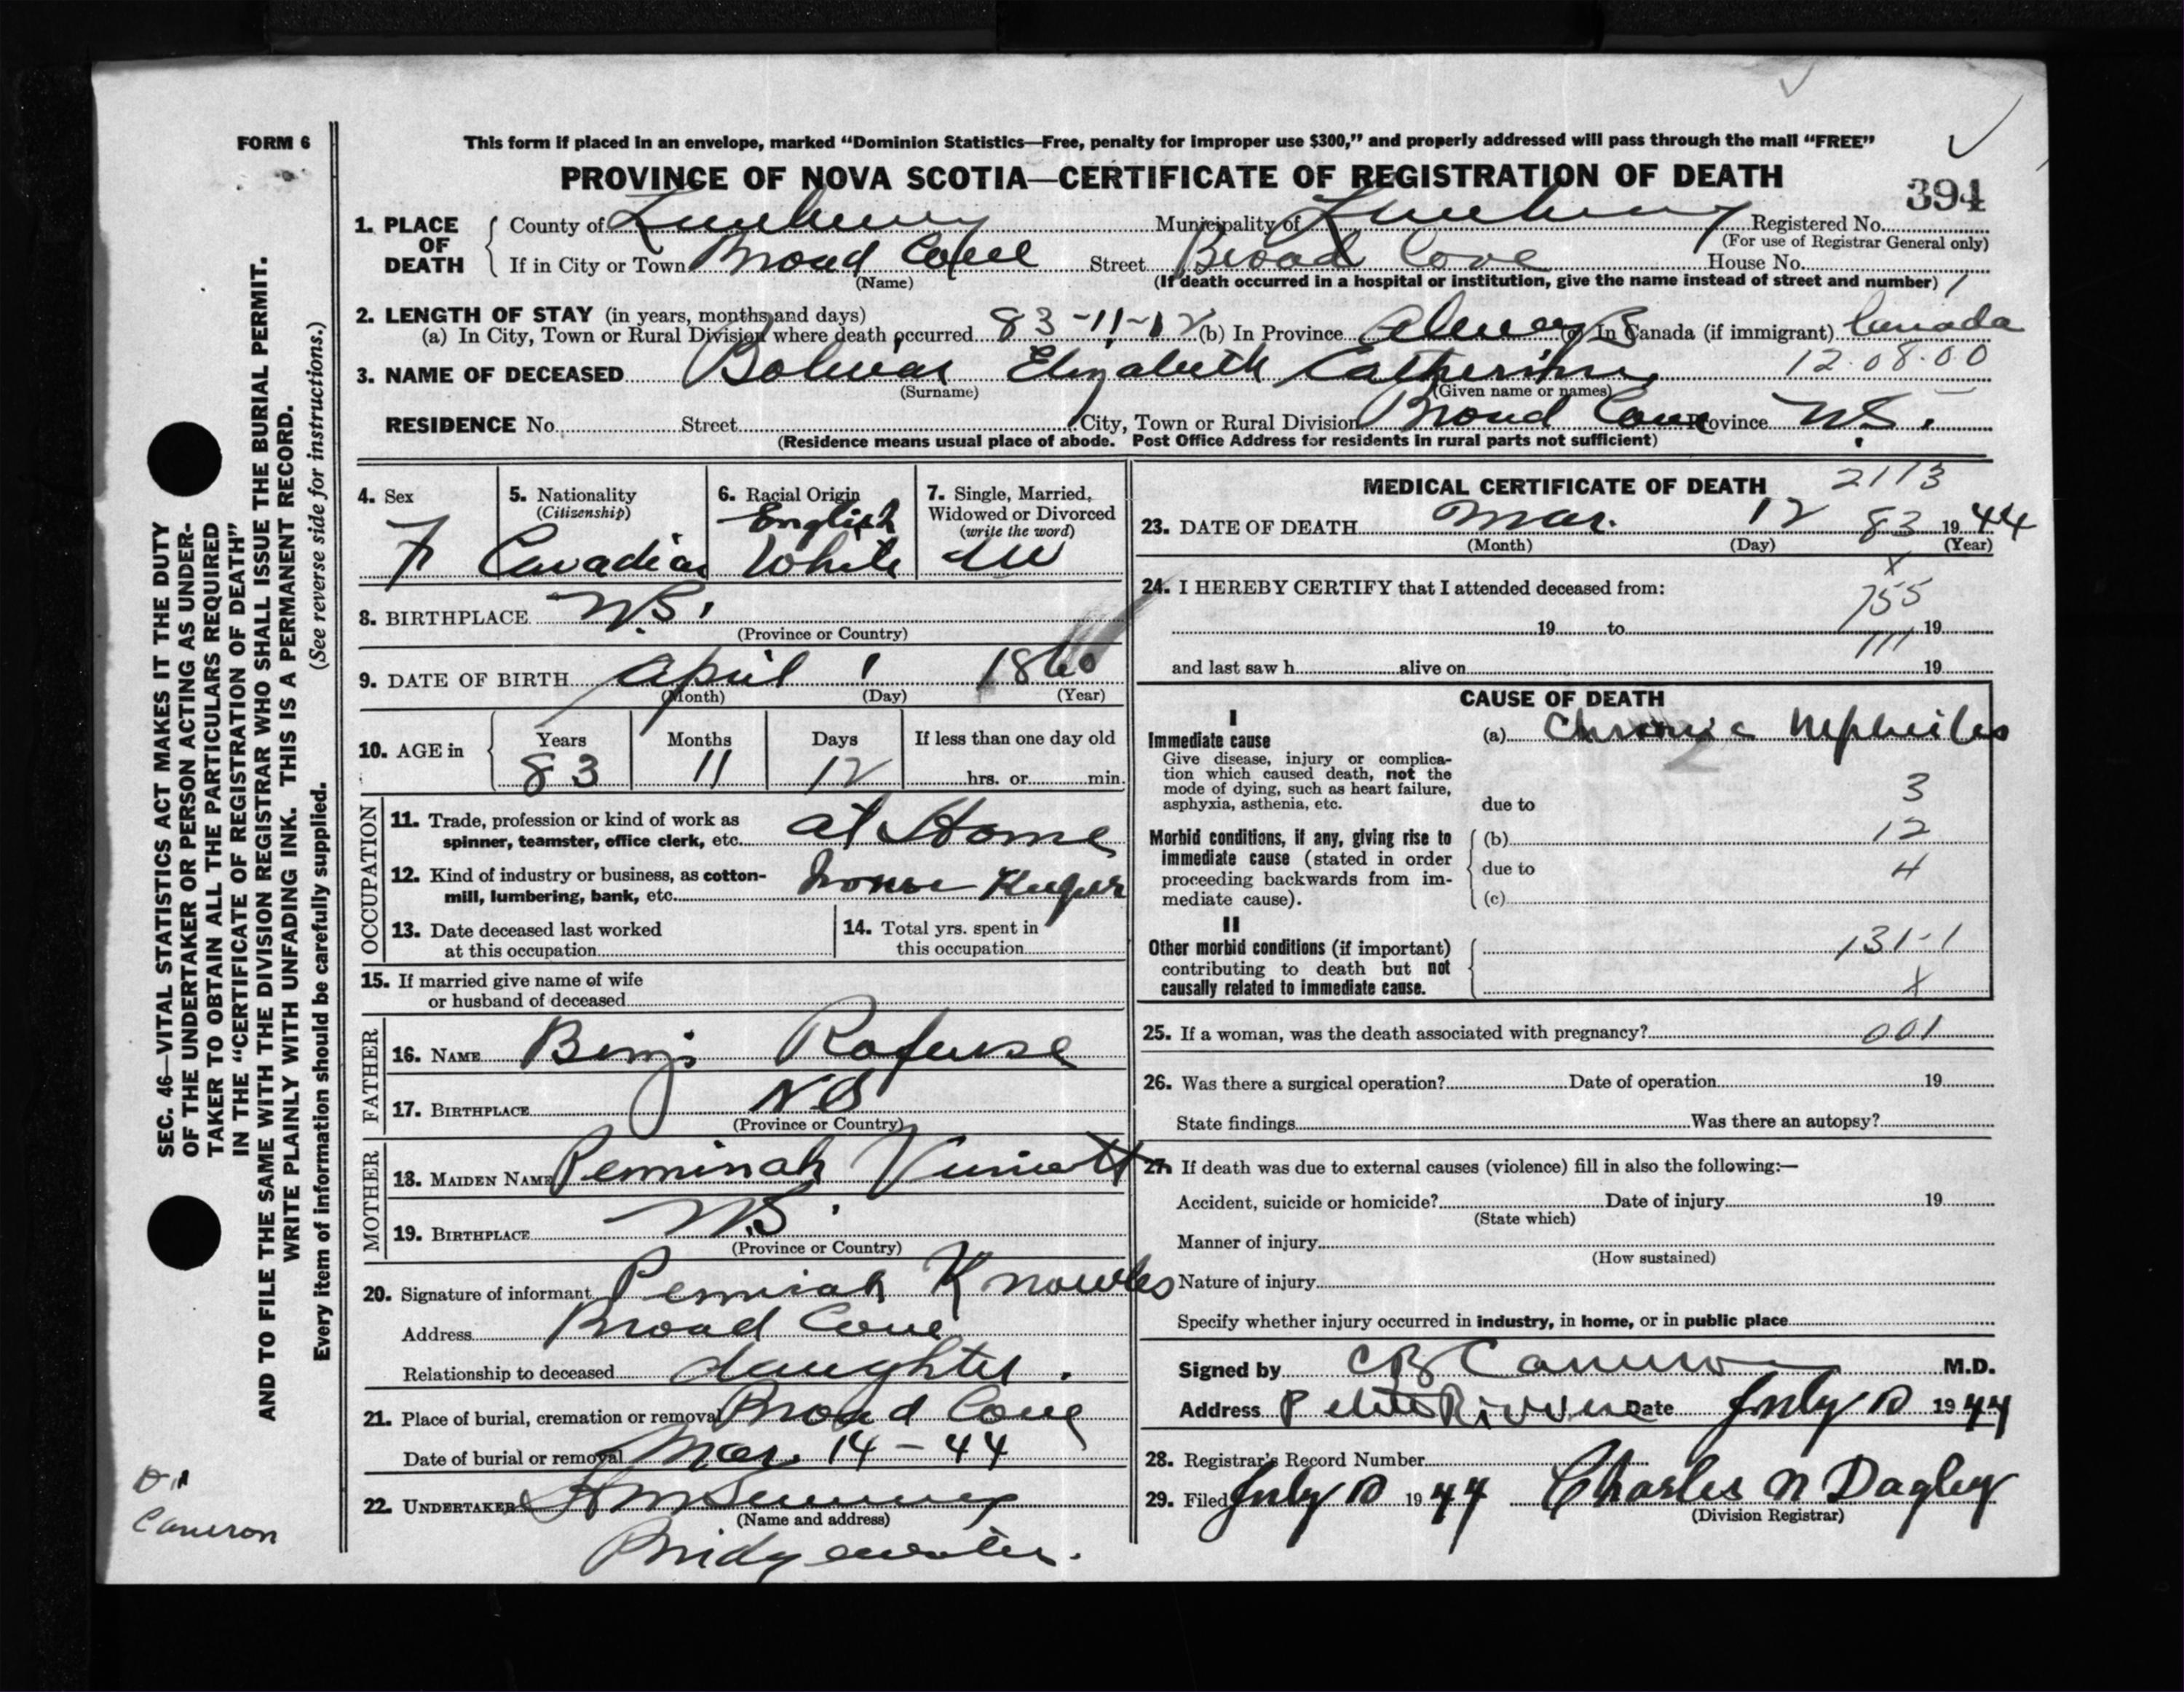 FORM 6
This form if placed in an envelope, marked "Dominion Statistics—Free, penalty for improper use $300," and properly addressed will pass through the mail "FREE"
PROVINCE OF NOVA SCOTIA—CERTIFICATE OF REGISTRATION OF DEATH
394
1. PLACE OF DEATH
County of Lunenburg Municipality of Lunenburg Registered No.
(For use of Registrar General only)
If in City or Town Broad Cove Street Broad Cove House No.
(Name) (If death occurred in a hospital or institution, give the name instead of street and number)
2. LENGTH OF STAY (in years, months and days)
(a) In City, Town or Rural Division where death occurred 83-11-12 (b) In Province Always (c) In Canada (if immigrant) Canada
3. NAME OF DECEASED Bolivar Elizabeth Catherine 12.08.00
(Surname) (Given name or names)
RESIDENCE No. Street City, Town or Rural Division Broad Cove Province N.S.
(Residence means usual place of abode. Post Office Address for residents in rural parts not sufficient)
4. Sex
F
5. Nationality
(Citizenship)
Canadian
6. Racial Origin
English
White
7. Single, Married, Widowed or Divorced
(write the word)
8. BIRTHPLACE N.S.
(Province or Country)
9. DATE OF BIRTH April 1 1860
(Month) (Day) (Year)
10. AGE in Years Months Days If less than one day old
83 11 12 hrs. or min.
OCCUPATION
11. Trade, profession or kind of work as spinner, teamster, office clerk, etc. at Home
12. Kind of industry or business, as cotton-mill, lumbering, bank, etc. house Keeper
13. Date deceased last worked at this occupation
14. Total yrs. spent in this occupation
15. If married give name of wife or husband of deceased
FATHER
16. NAME Benj Rafuse
17. BIRTHPLACE N.S
(Province or Country)
MOTHER
18. MAIDEN NAME Peninnah
19. BIRTHPLACE N.S.
(Province or Country)
20. Signature of informant Penniah Knowles
Address Broad Cove
Relationship to deceased daughter.
21. Place of burial, cremation or removal Broad Cove
Date of burial or removal Mar. 14-44
22. UNDERTAKER
(Name and address)
Bridgewater.
MEDICAL CERTIFICATE OF DEATH 2113
23. DATE OF DEATH Mar. 12 83 1944
(Month) (Day) (Year)
24. I HEREBY CERTIFY that I attended deceased from: x
755
19 to 19
111
and last saw h alive on 19
CAUSE OF DEATH
I
Immediate cause
Give disease, injury or complication which caused death, not the mode of dying, such as heart failure, asphyxia, asthenia, etc.
(a) Chronic Nephritis
3
due to
Morbid conditions, if any, giving rise to immediate cause (stated in order proceeding backwards from immediate cause).
(b) 12
due to 4
(c)
II
Other morbid conditions (if important) contributing to death but not causally related to immediate cause.
131-1
x
25. If a woman, was the death associated with pregnancy? 001
26. Was there a surgical operation? Date of operation 19
State findings Was there an autopsy?
27. If death was due to external causes (violence) fill in also the following:—
Accident, suicide or homicide? Date of injury 19
(State which)
Manner of injury
(How sustained)
Nature of injury
Specify whether injury occurred in industry, in home, or in public place
Signed by CB Cameron M.D.
Address Petite Riviere Date July 10 1944
28. Registrar's Record Number
29. Filed July 10 1944 Charles N Dagley
(Division Registrar)
SEC. 46—VITAL STATISTICS ACT MAKES IT THE DUTY
OF THE UNDERTAKER OR PERSON ACTING AS UNDER-
TAKER TO OBTAIN ALL THE PARTICULARS REQUIRED
IN THE "CERTIFICATE OF REGISTRATION OF DEATH"
AND TO FILE THE SAME WITH THE DIVISION REGISTRAR WHO SHALL ISSUE THE BURIAL PERMIT.
WRITE PLAINLY WITH UNFADING INK. THIS IS A PERMANENT RECORD.
Every item of information should be carefully supplied. (See reverse side for instructions.)
Dr
Cameron